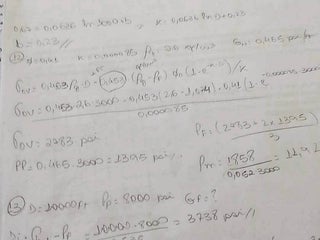 0,67 = 0,0626 ln 3000 + b , K = 0,0626 ln D + 0,23
b = 0,23 //
12) ϕ=0,41 K = 0,000085 ρg = 2,6 g/cm3 Gn: 0,465 psi/ft
σov = 0,433 ρg D - 0,433 (ρg - ρf) ϕ0 (1-e^-KD)/K
σov = 0,433·2,6·3000 - 0,433(2,6 - 1,074)·0,41 (1-e^-0,000085·3000
0,000085
σov = 2783 psi
PP = 0,465·3000 = 1395 psi/.
Pf = (2783 + 2 x 1395)
3
Pm = 1858
0,052·3000
= 11,9 L
13) D = 10000 ft Pp = 8000 psi Gf = ?
= 10000 - 8000
= 3738 psi //